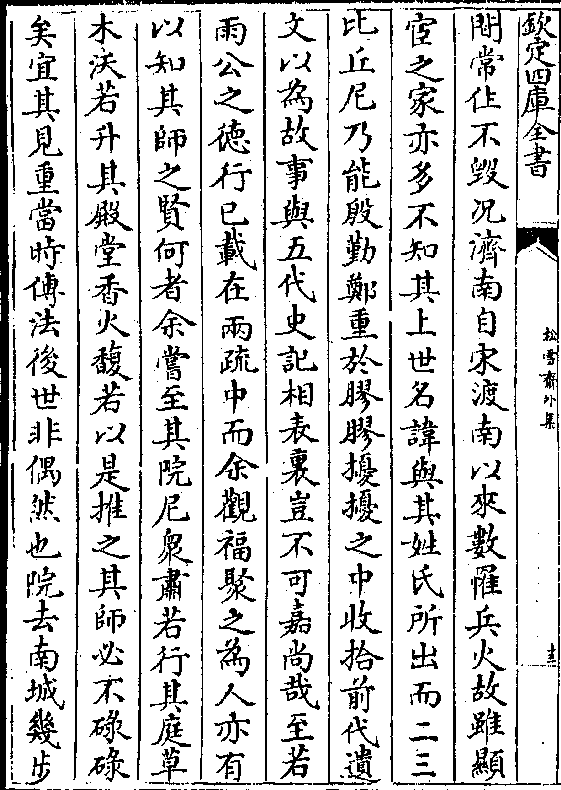 欽定四庫全書
松雪齋外集
十三
間常住不毀况濟南自宋渡南以來數罹兵火故雖顯
宦之家亦多不知其上世名諱與其姓氏所出而二三
比丘尼乃能殷勤鄭重於膠膠擾擾之中收拾前代遺
文以為故事與五代史記相表裏豈不可嘉尚哉至若
兩公之德行已載在兩疏中而余觀福聚之為人亦有
以知其師之賢何者余嘗至其院尼衆肅若行其庭草
木沃若升其殿堂香火馥若以是推之其師必不碌碌
矣宜其見重當時傳法後世非偶然也院去南城幾步